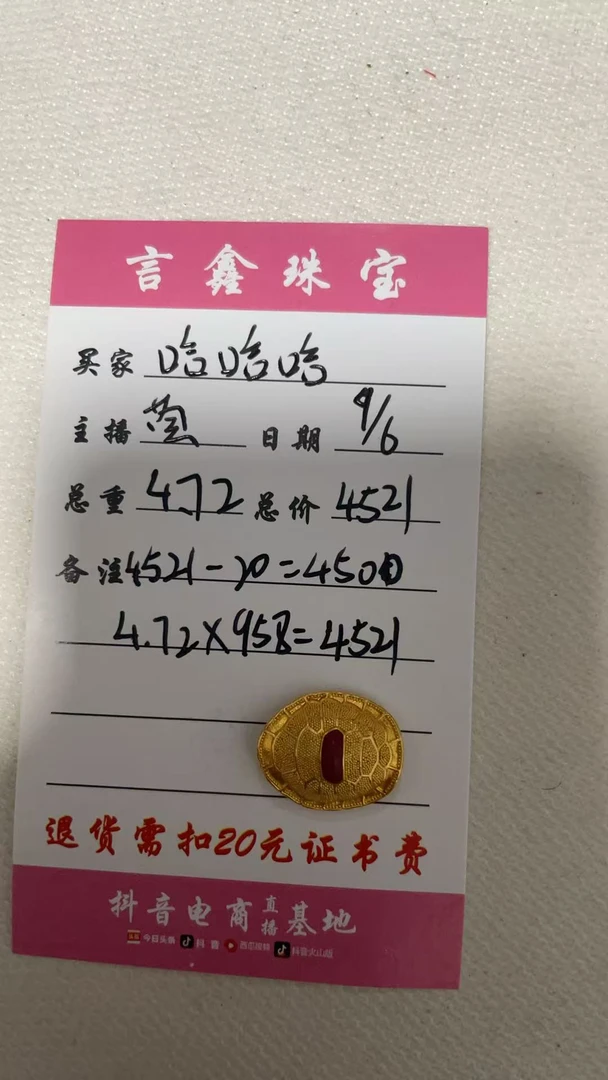 言鑫珠宝
买家 哈哈哈
主播 日期 9/6
总重 4.72 总价 4521
备注 4521-20=4500
4.72×958=4521
退货需扣20元证书费
抖音电商直播基地
今日头条 抖音 西瓜视频 抖音火山版